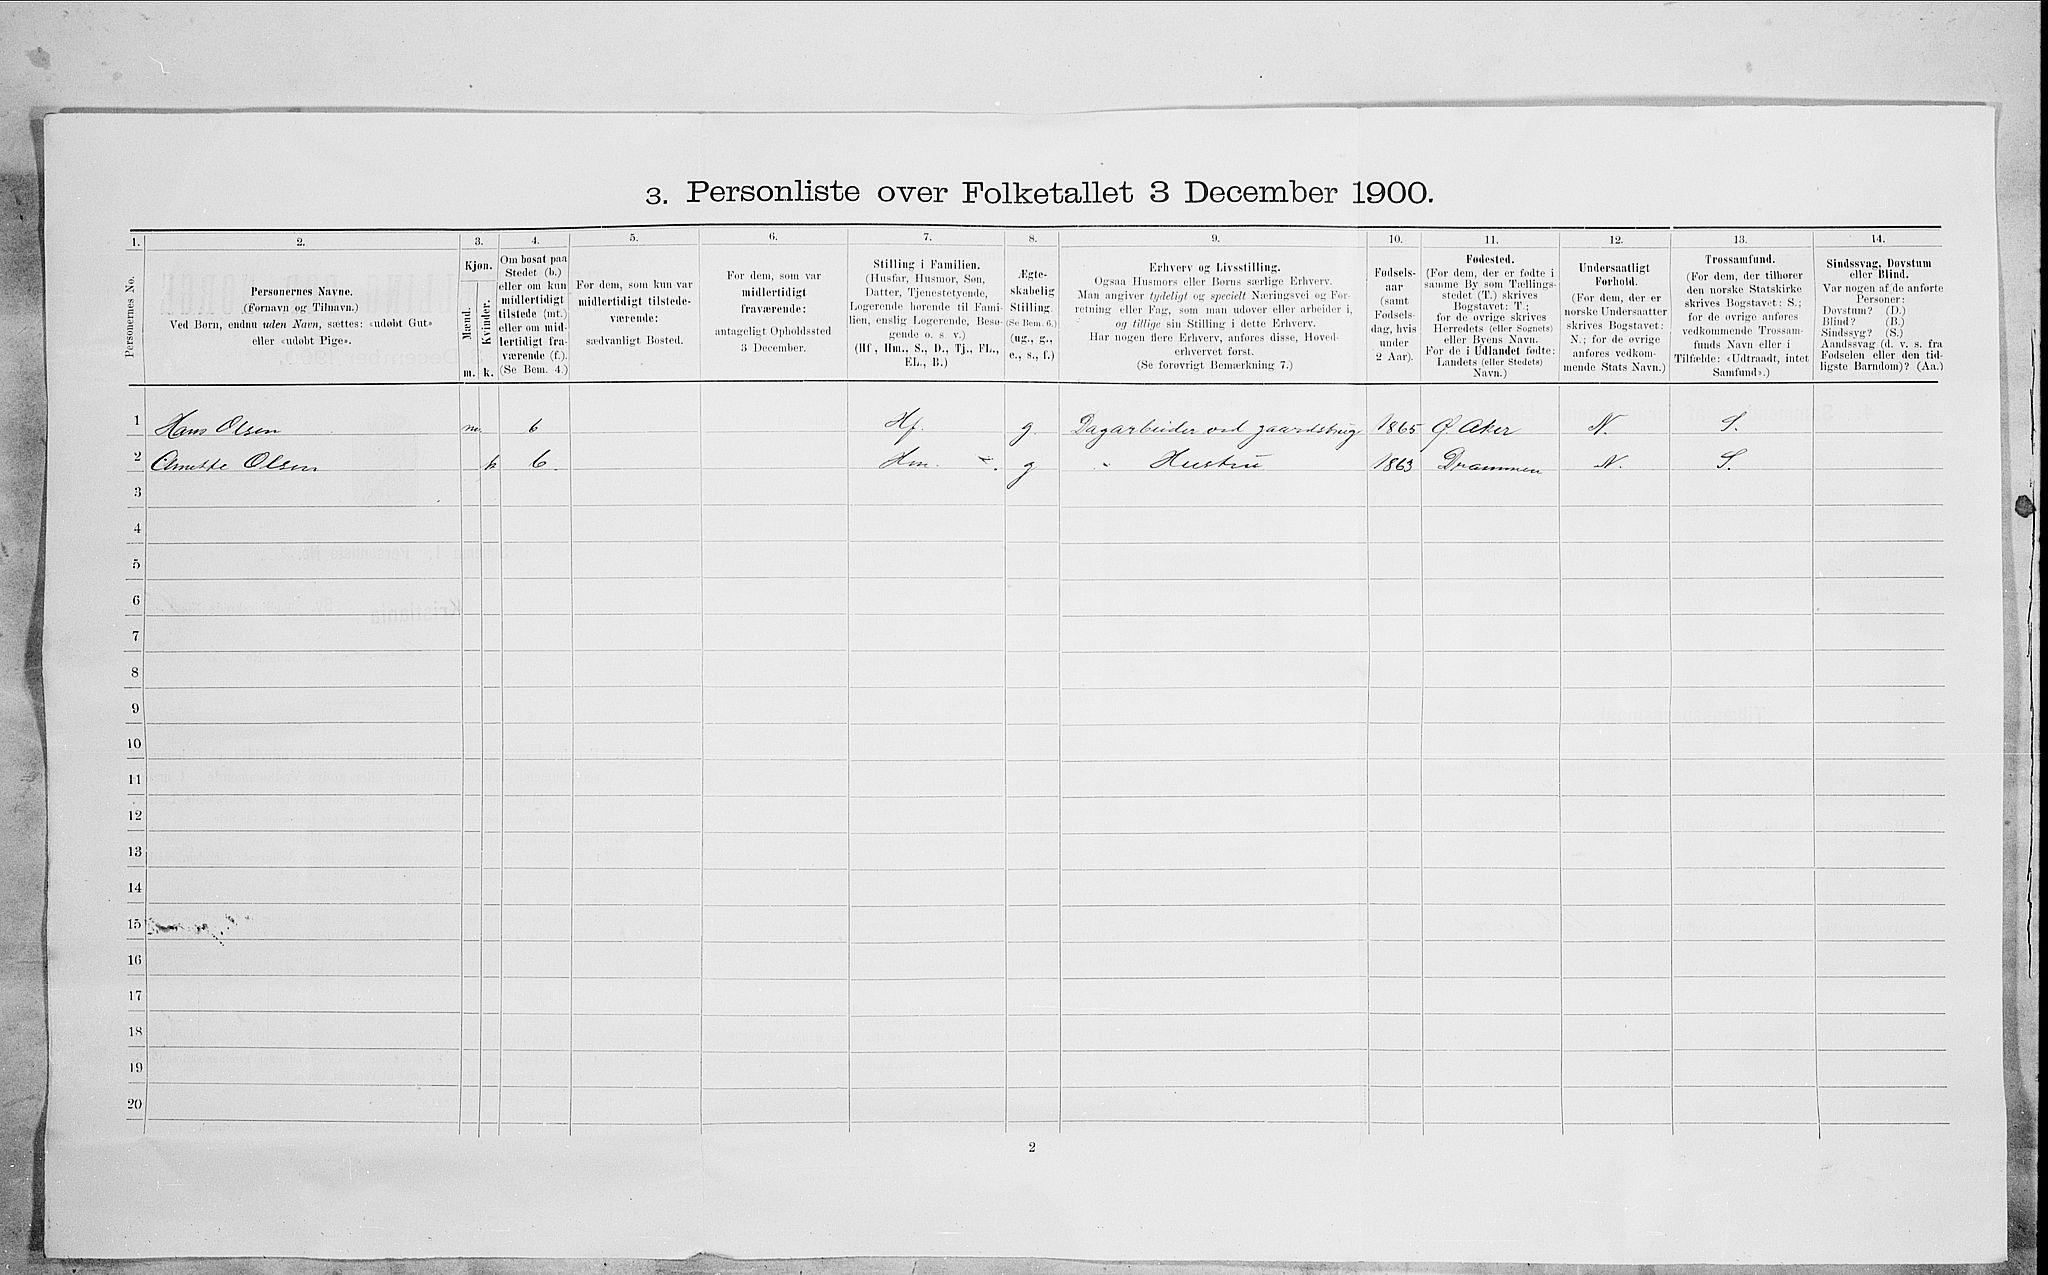 3. Personliste over Folketallet 3 December 1900.
1. 2. 3. 4. 5. 6. 7. 8. 9. 10. 11. 12. 13. 14.
Personernes No.
Personernes Navne.
(Fornavn og Tilnavn.)
Ved Børn, endnu uden Navn, sættes: «udøbt Gut»
eller «udøbt Pige».
Kjøn.
Mænd.
Kvinder.
m. k.
Om bosat paa
Stedet (b.)
eller om kun
midlertidigt
tilstede (mt.)
eller om mid-
lertidigt fra-
værende (f.).
(Se Bem. 4.)
For dem, som kun var
midlertidigt tilstede-
værende:
sædvanligt Bosted.
For dem, som var
midlertidigt
fraværende:
antageligt Opholdssted
3 December.
Stilling i Familien.
(Husfar, Husmor, Søn,
Datter, Tjenestetyende,
Logerende hørende til Fami-
lien, enslig Logerende, Besø-
gende o. s. v.)
(Hf., Hm., S., D., Tj., FL.,
EL., B.)
Ægte-
skabelig
Stilling.
(Se Bem. 6.)
(ug., g.,
e., s., f.)
Erhverv og Livsstilling.
Ogsaa Husmors eller Børns særlige Erhverv.
Man angiver tydeligt og specielt Næringsvei og For-
retning eller Fag, som man udøver eller arbeider i,
og tillige sin Stilling i dette Erhverv.
Har nogen flere Erhverv, anføres disse, Hoved-
erhvervet først.
(Se forøvrigt Bemærkning 7.)
Fødsels-
aar
(samt
Fødsels-
dag, hvis
under
2 Aar).
Fødested.
(For dem, der er fødte i
samme By som Tællings-
stedet (T.) skrives
Bogstavet: T;
for de øvrige skrives
Herredets (eller Sognets)
eller Byens Navn.
For de i Udlandet fødte:
Landets (eller Stedets)
Navn.)
Undersaatligt
Forhold.
(For dem, der er
norske Undersaatter
skrives Bogstavet:
N.; for de øvrige
anføres vedkom-
mende Stats Navn.)
Trossamfund.
(For dem, der tilhører
den norske Statskirke
skrives Bogstavet: S.;
for de øvrige anføres
vedkommende Trossam-
funds Navn eller i
Tilfælde: «Udtraadt, intet
Samfund».)
Sindssvag, Døvstum
eller Blind.
Var nogen af de anførte
Personer:
Døvstum? (D.)
Blind? (B.)
Sindssyg? (S.)
Aandssvag (d. v. s. fra
Fødselen eller den tid-
ligste Barndom)? (Aa.)
1 Hans Olsen m. b Hf. g. Dagarbeider ved gaardsbrug 1865 Ø. Aker N. S.
2 Annette Olsen k b. Hm. g " Hustru 1863 Drammen N. S.
3
4
5
6
7
8
9
10
11
12
13
14
15
16
17
18
19
20
2